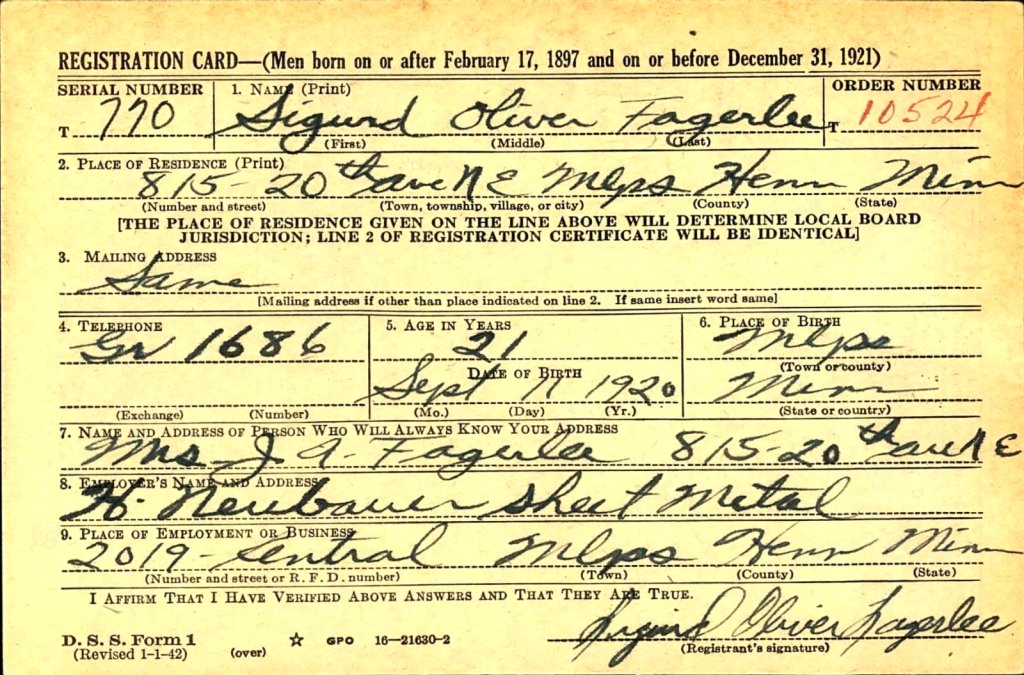 REGISTRATION CARD—(Men born on or after February 17, 1897 and on or before December 31, 1921)
SERIAL NUMBER 1. NAME (Print) ORDER NUMBER
T 770 Sigurd Oliver Fagerlee T 10524
(First) (Middle) (Last)
2. PLACE OF RESIDENCE (Print)
815-20th ave N E Mlps Henn Minn
(Number and street) (Town, township, village, or city) (County) (State)
[THE PLACE OF RESIDENCE GIVEN ON THE LINE ABOVE WILL DETERMINE LOCAL BOARD
JURISDICTION; LINE 2 OF REGISTRATION CERTIFICATE WILL BE IDENTICAL]
3. MAILING ADDRESS
Same
[Mailing address if other than place indicated on line 2. If same insert word same]
4. TELEPHONE 5. AGE IN YEARS 6. PLACE OF BIRTH
Gr 1686 21 Mlps
DATE OF BIRTH (Town or county)
Sept 11 1920 Minn
(Exchange) (Number) (Mo.) (Day) (Yr.) (State or country)
7. NAME AND ADDRESS OF PERSON WHO WILL ALWAYS KNOW YOUR ADDRESS
Mrs J A. Fagerlee 815-20th ave N E
8. EMPLOYER'S NAME AND ADDRESS
H. Neubauer Sheet Metal
9. PLACE OF EMPLOYMENT OR BUSINESS
2019- Sentral Mlps Henn Minn
(Number and street or R. F. D. number) (Town) (County) (State)
I AFFIRM THAT I HAVE VERIFIED ABOVE ANSWERS AND THAT THEY ARE TRUE.
Sigurd Oliver Fagerlee
D. S. S. Form 1 ☆ GPO 16—21630-2 (Registrant's signature)
(Revised 1-1-42) (over)